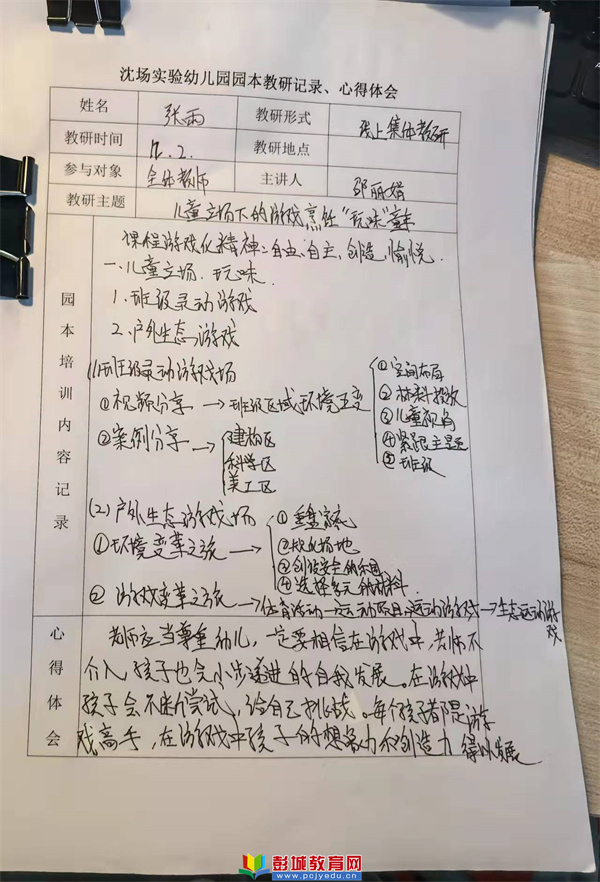 沈场实验幼儿园园本教研记录、心得体会
姓名 张雨 教研形式 线上集体教研
教研时间 12.2. 教研地点
参与对象 全体教师 主讲人 邵丽娟
教研主题 儿童立场下的游戏烹饪“玩味”童年
园本培训内容记录
课程游戏化精神:自由、自主、创造、愉悦.
一.儿童立场.玩味.
1.班级灵动游戏
2.户外生态游戏
(1)班级灵动游戏场
①视频分享→班级区域环境五变
①空间布局
②材料投放
③儿童视角
④紧跟主题
⑤班级
②案例分享→
建构区
科学区
美工区
(2)户外生态游戏场
①环境变革之旅→
①重整
场地
③创设安全的乐园
④选择多元的材料
②游戏变革之旅→体育活动—运动项目—运动游戏→生态运动游戏
心得体会
老师应当尊重幼儿,一定要相信在游戏中,老师不
介入孩子也会小步递进的自我发展。在游戏中
孩子会不断尝试,给自己挑战。每个孩子都是游
戏高手,在游戏中孩子的想象力和创造力得以发展
彭城教育网
www.pcjyedu.cn